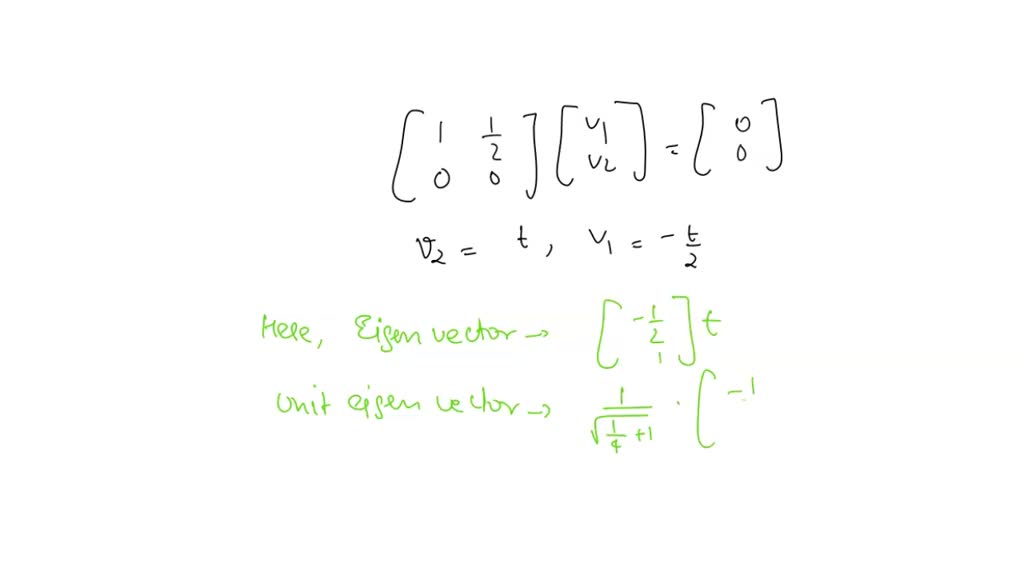 [ 1 1/2 0 0 ] [ v1 v2 ] = [ 0 0 ]
v2 = t , v1 = - t/2
Here, Eigen vector → [ -1/2 1 ] t
Unit eigen vector → 1/√(1/4 +1) · [ -1